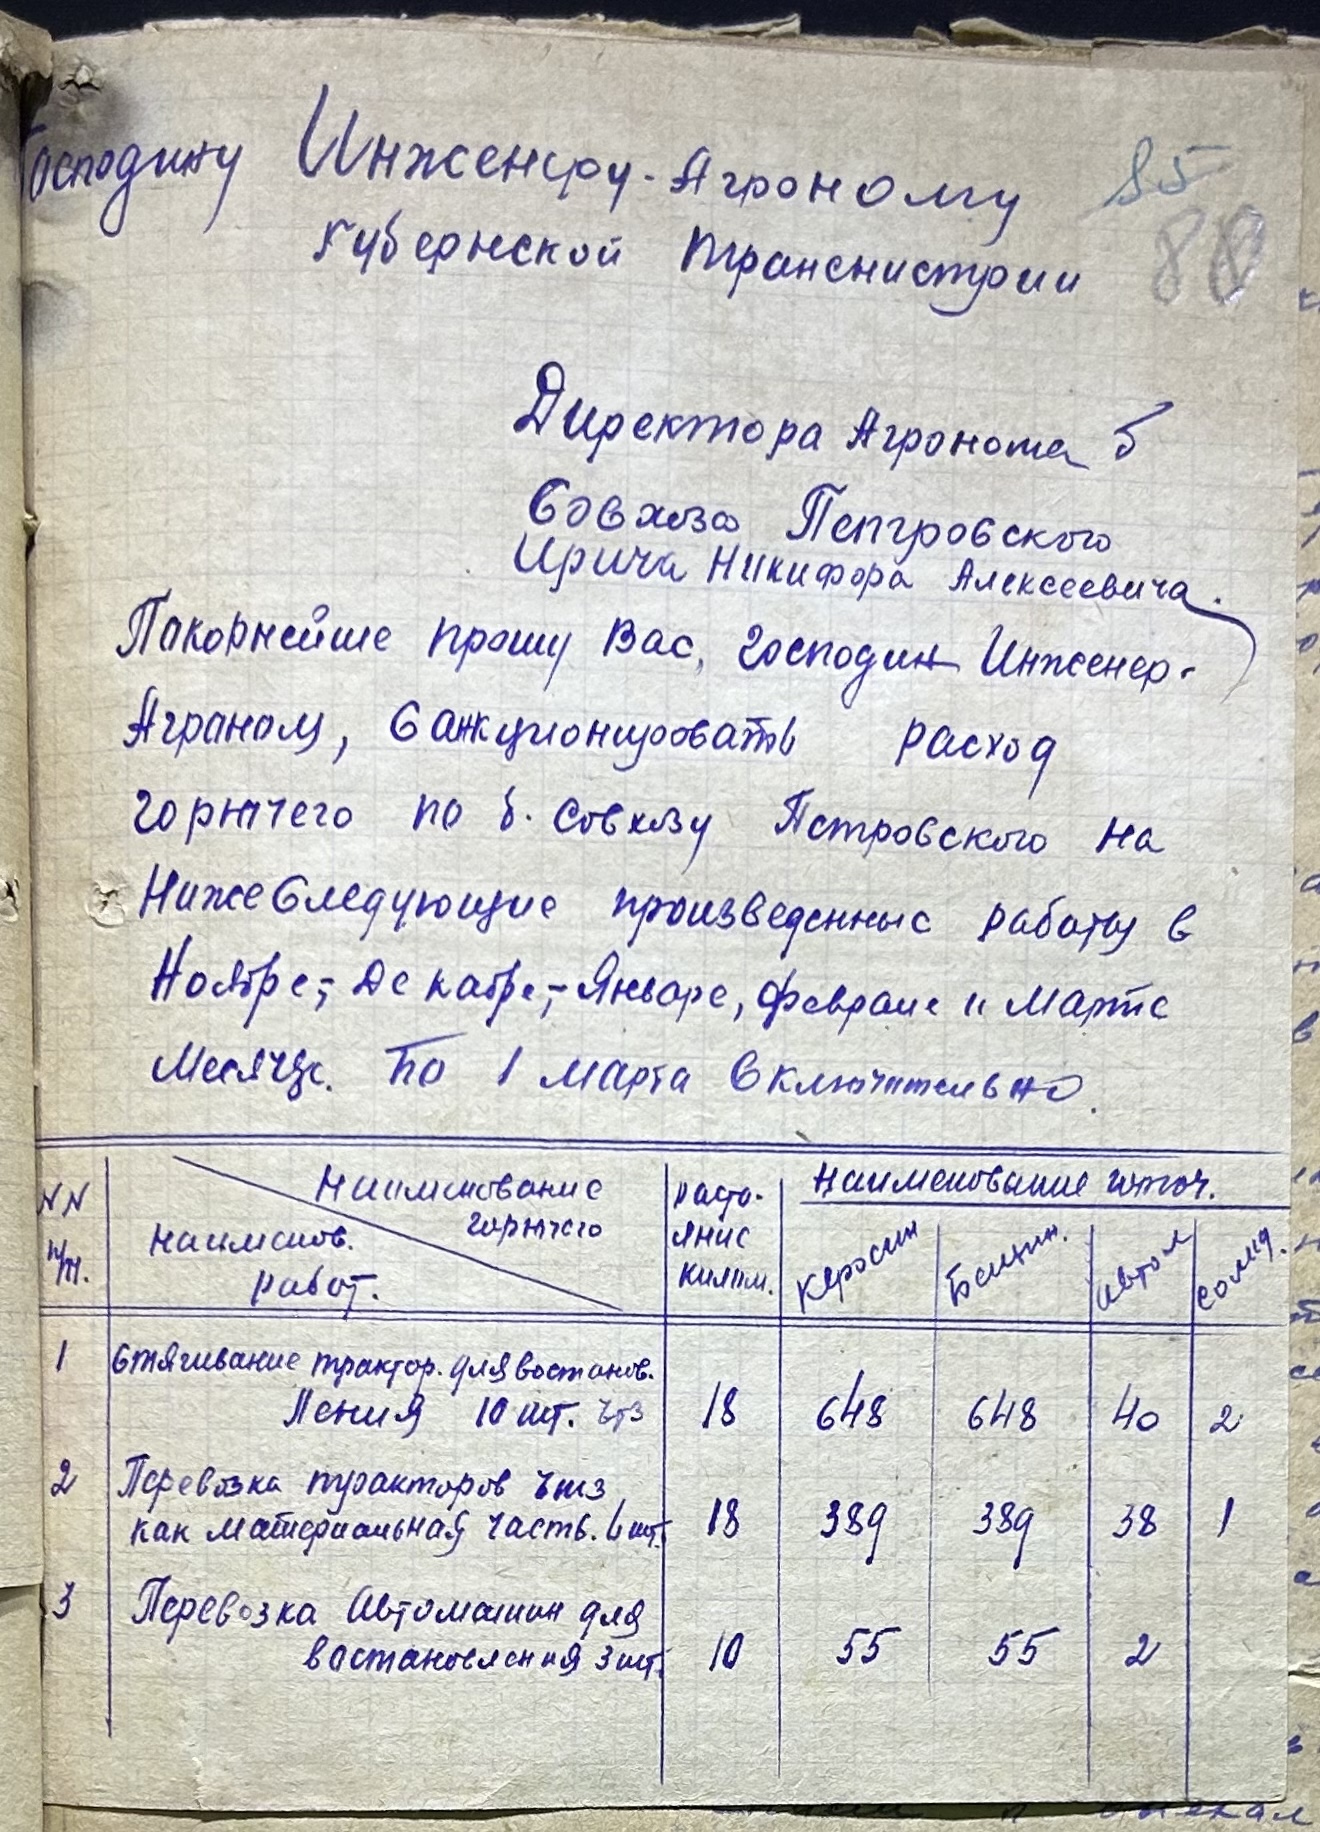 Господину Инженеру-Агроному
Губернской Транснистрии
85
80
Директора Агронома б
Совхоза Петровского
Ирича Никифора Алексеевича.
Покорнейше прошу Вас, господин Инженер-
Аграном, санкционировать расход
горючего по б. совхозу Петровского на
нижеследующие произведенные работы в
Ноябре,- Декабре,- Январе, феврале и Марте
месяце. По 1 марта включительно.
NN п/п. Наименование горючего Наименов. работ. расто-яние килом. Наименование горюч.
Керосин Бензин. автол солид.
1 Стягивание трактор. для востанов.
ления 10 шт. чтз 18 648 648 40 2
2 Перевозка тракторов чтз
как материальная часть. 6 шт. 18 389 389 38 1
3 Перевозка Автомашин для
востановления 3 шт. 10 55 55 2